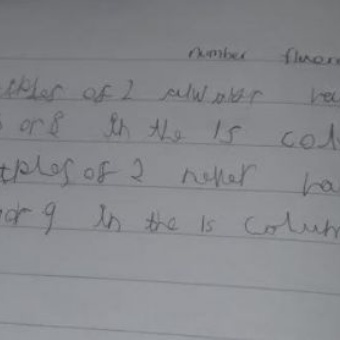 number fluen
iples of 2 always ha
or 8 in the 1s colu
tiples of 2 never ha
or 9 in the 1s colum